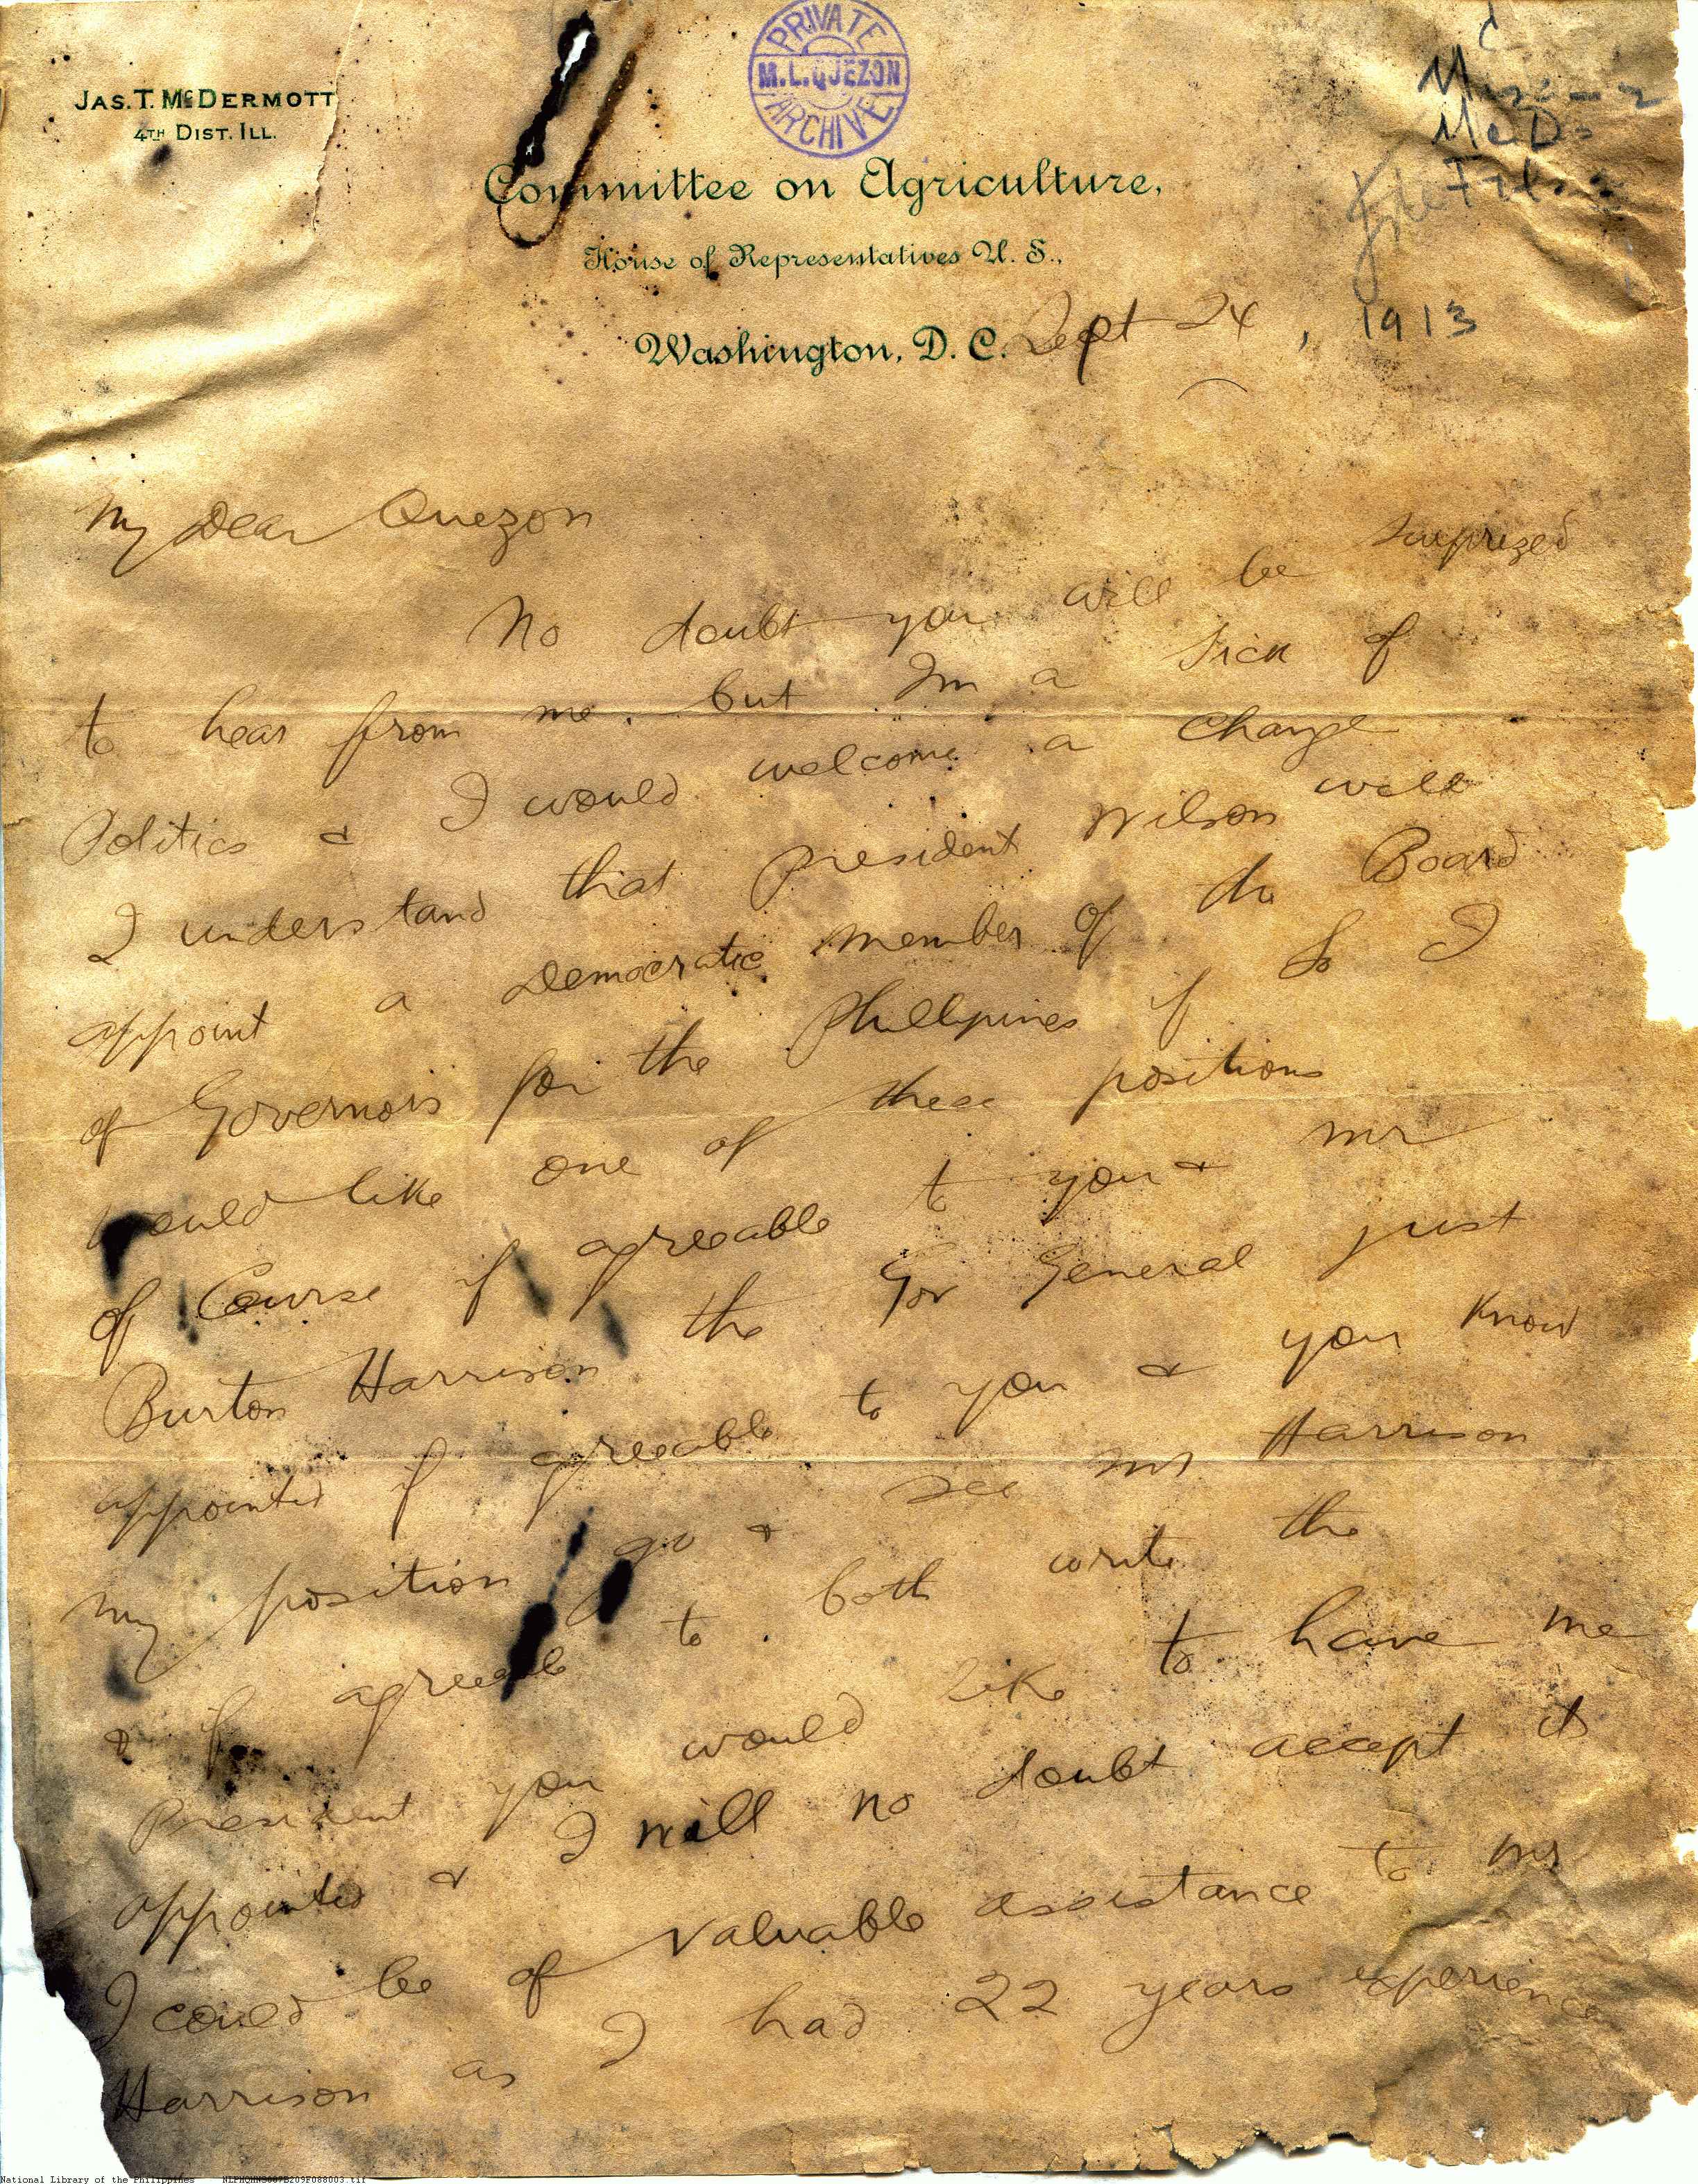 PRIVATE
M.L.QUEZON
ARCHIVE
JAS. T. McDERMOTT
4TH DIST. ILL.
Committee on Agriculture,
House of Representatives U. S.,
Washington, D. C. Sept 24, 1913
My Dear Quezon
No doubt you will be surprized
to hear from me. but Im a sick of
Politics & I would welcome a change
I understand that President Wilson will
appoint a Democratic member of the Board
of Governors for the Phillipines if so I
would like one of these positions
of Course if agreeable to you & Mr
Burton Harrison the Gov General just
appointed if agreeable to you & you know
my position go & see Mr Harrison
& if agreeable to both write the
President you would like to have me
appointed & I will no doubt accept it
I could be of valuable assistance to Mr
Harrison as I had 22 years experience
National Library of the Philippines NLPHQHNS007B209F088003.tif